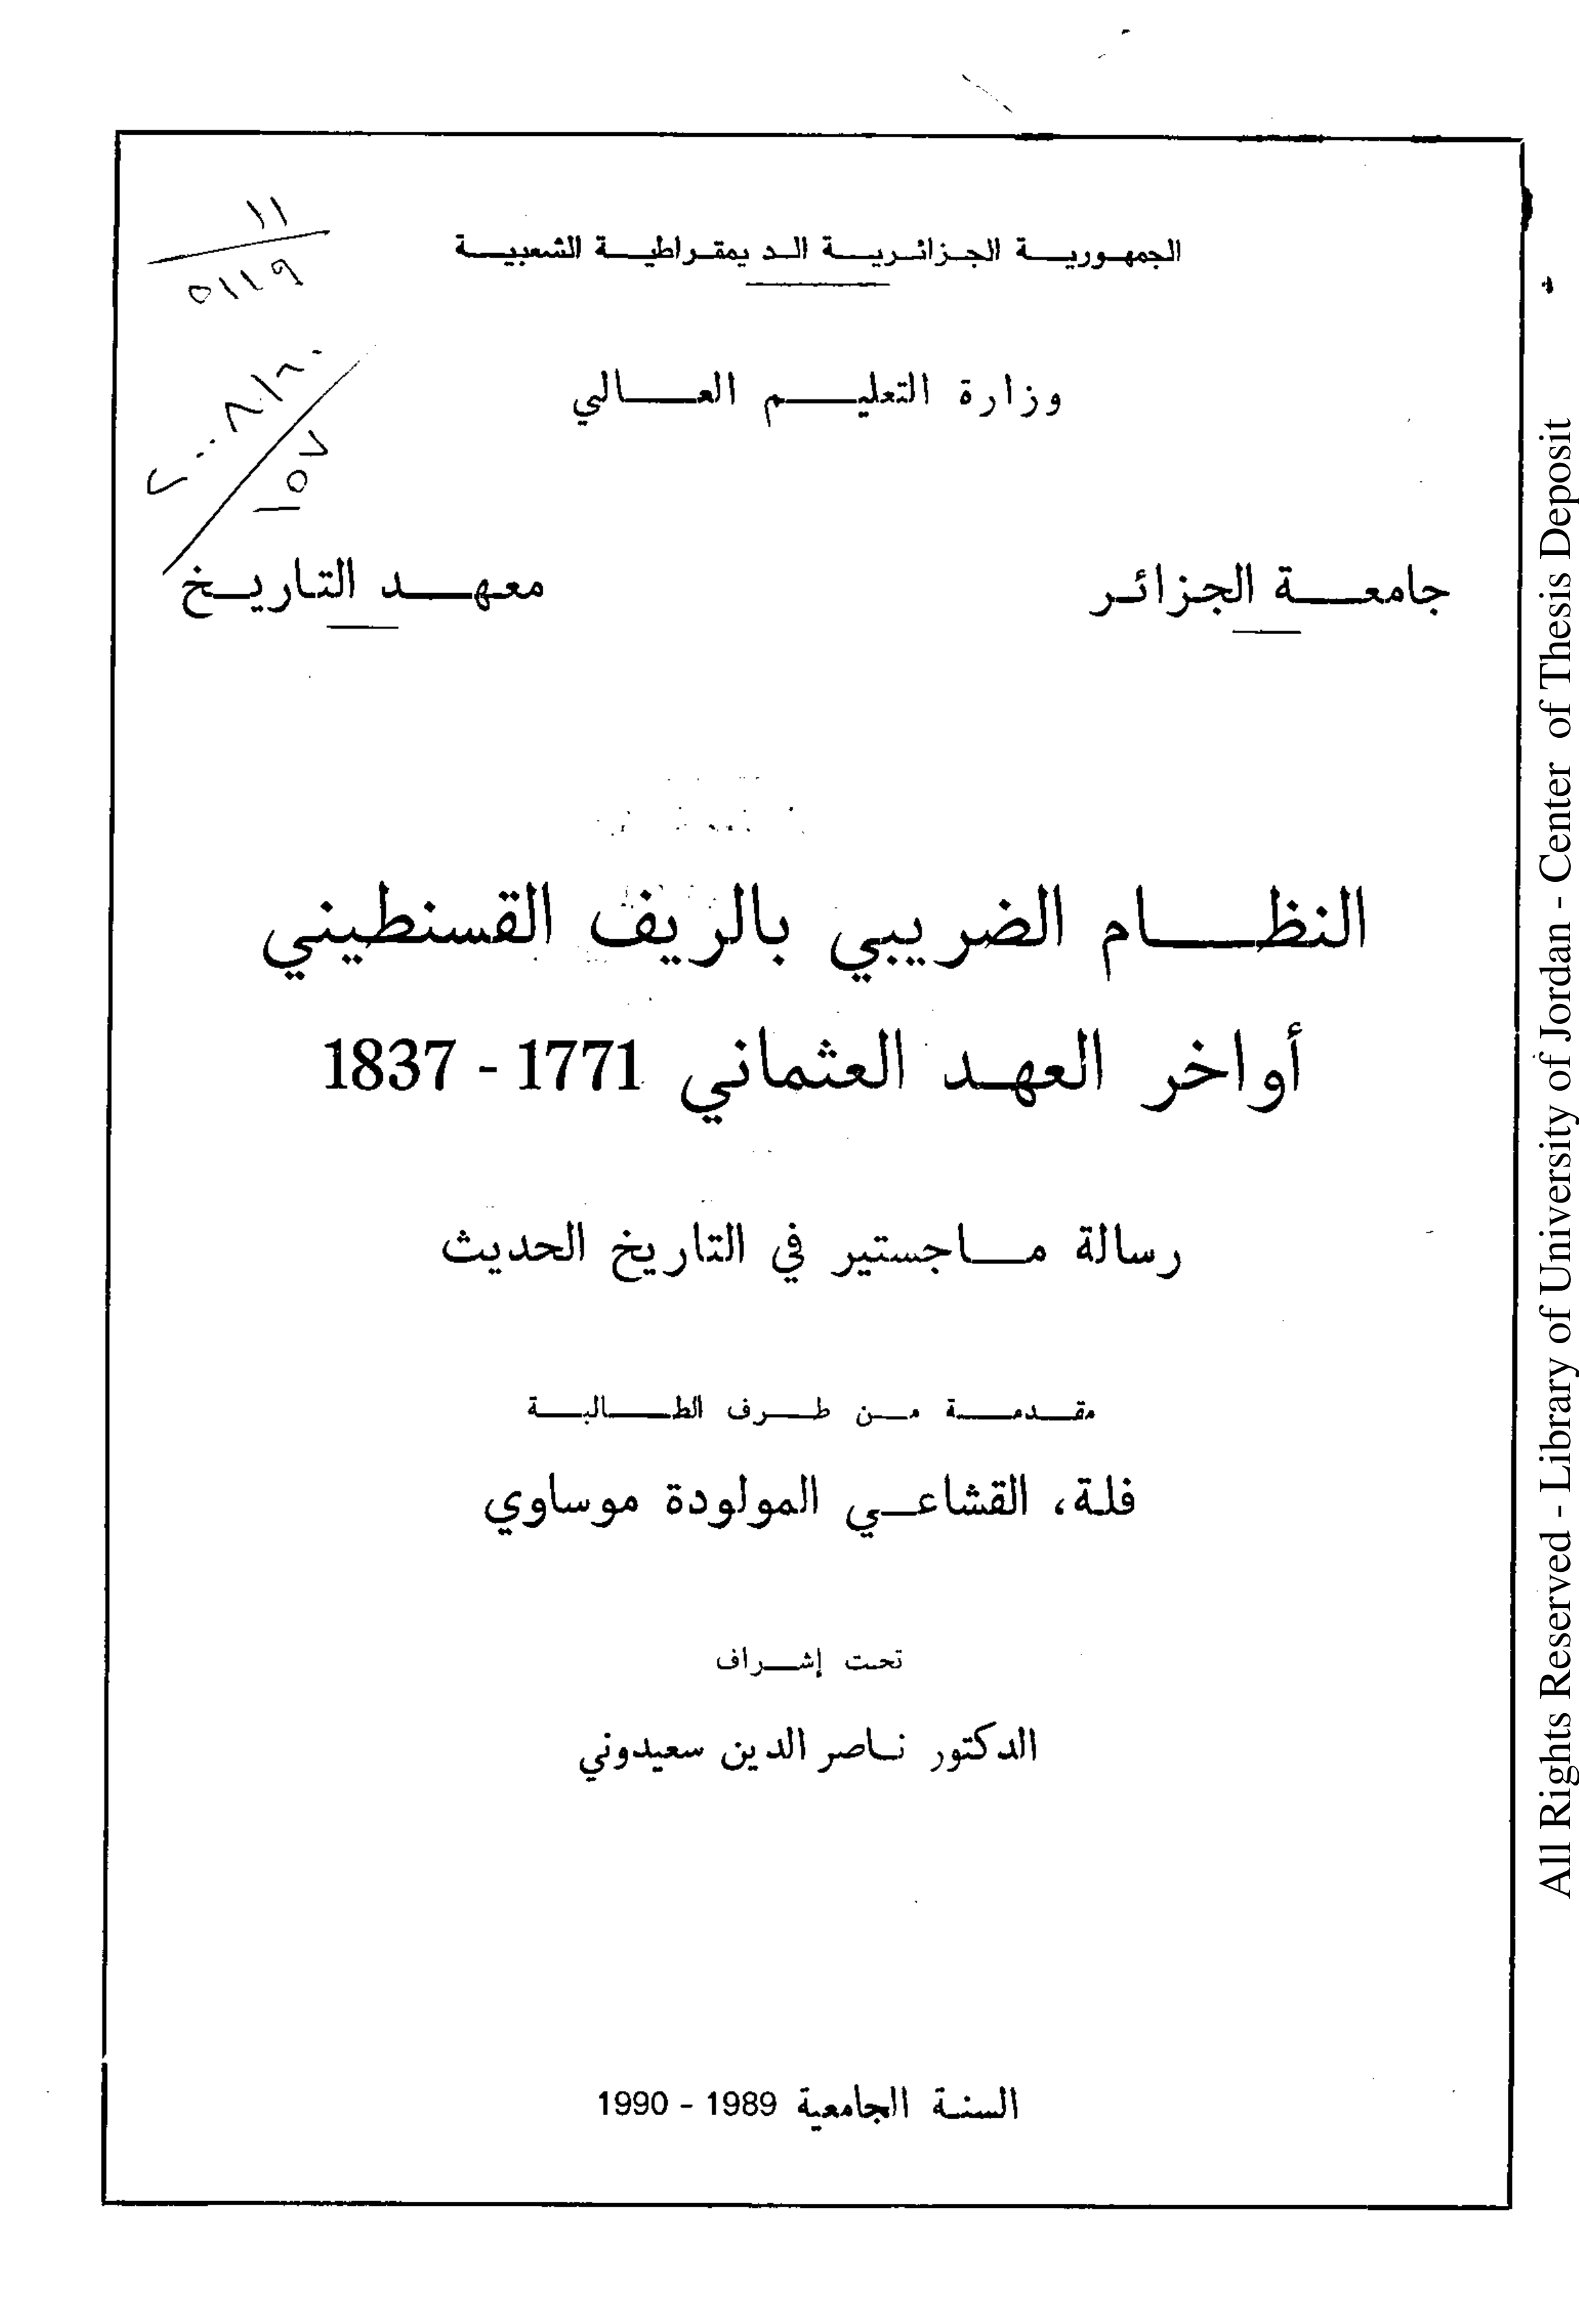 الجمهورية الجزائرية الديمقراطية الشعبية
وزارة التعليم العالي
جامعة الجزائر
معهد التاريخ
١١
٥١١٩
النظام الضريبي بالريف القسنطيني
أواخر العهد العثماني 1771 - 1837
رسالة ماجستير في التاريخ الحديث
مقدمة من طرف الطالبة
فلة، القشاعي المولودة موساوي
تحت إشراف
الدكتور ناصر الدين سعيدوني
السنة الجامعية 1989 - 1990
All Rights Reserved - Library of University of Jordan - Center of Thesis Deposit